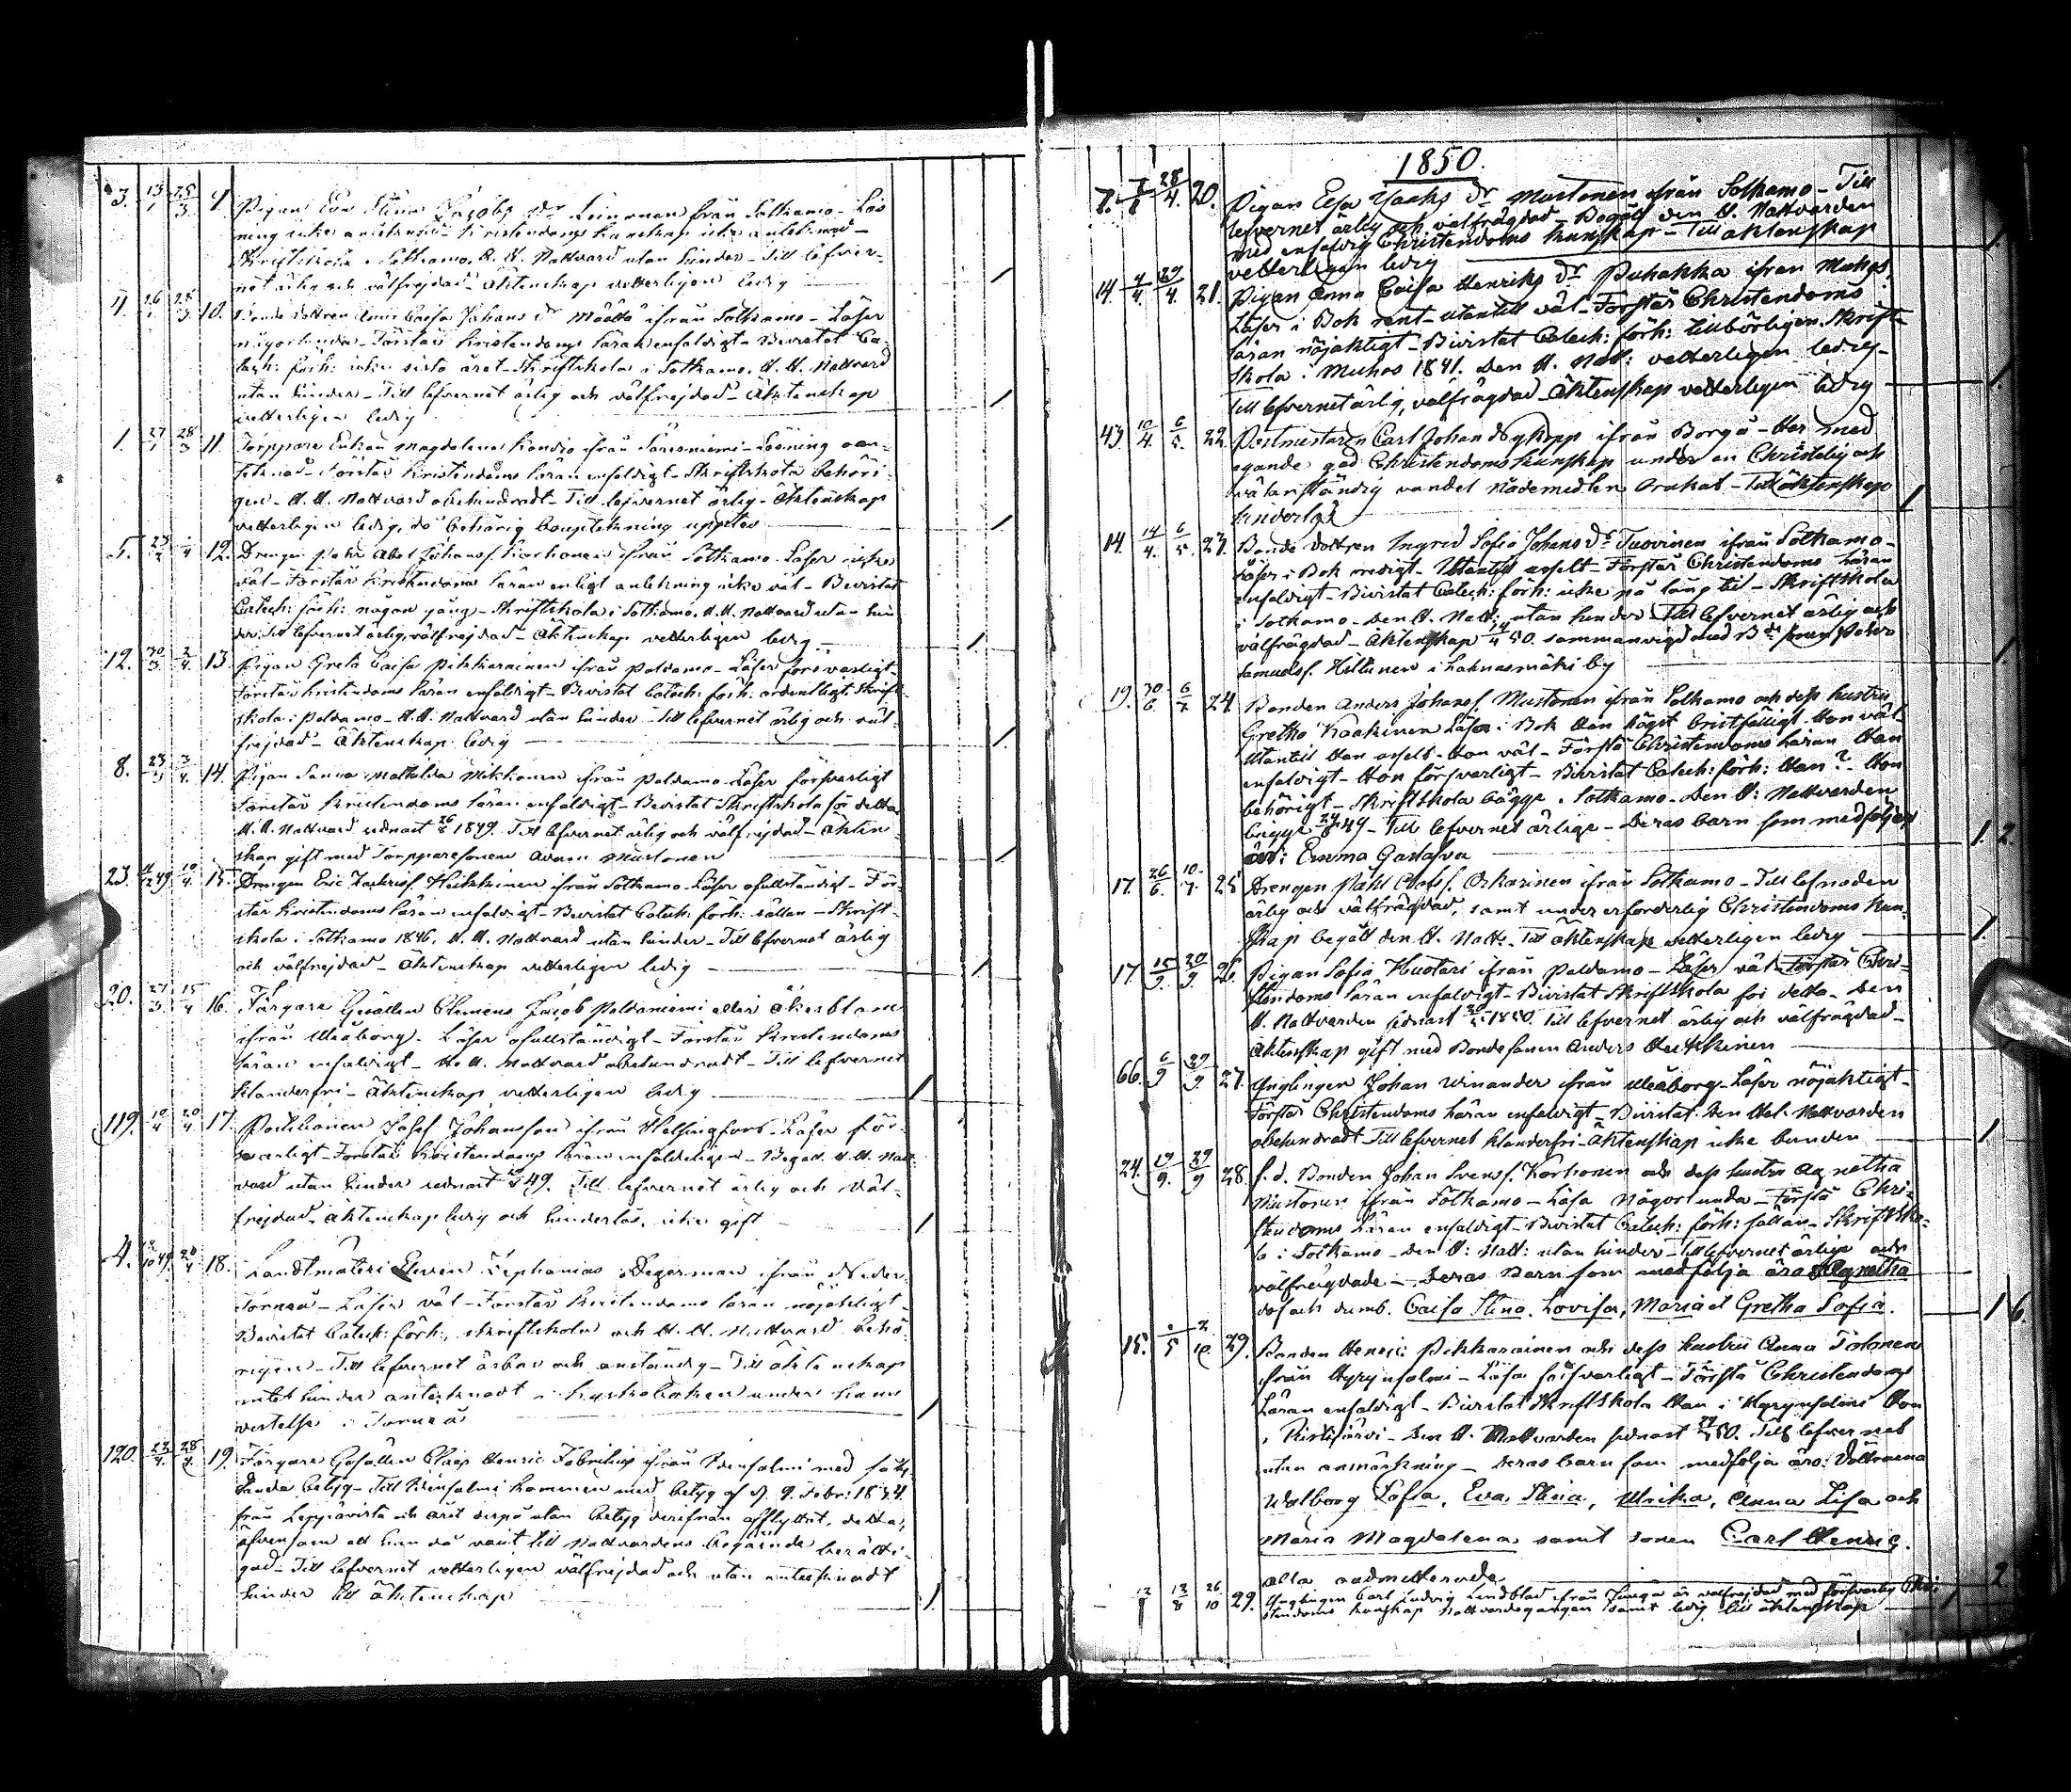 3. 13/1 25/3 9. Pigan Eva Stina Jacobs dr Leinonen från Sotkamo - Läs
ning icke antecknad - Kristendoms kunskap icke antecknad -
Skriftskola i Sotkamo. H. H. Nattvard utan hinder - Till lefver-
net ärlig och välfrejdad - Äktenskap vetterligen ledig
10. Bonde dottren Anna Caisa Johans dr Määttä ifrån Sotkamo - Läser
någorlunda - Förstår Kristendoms läran enfaldigt - Bevistat Ca-
tech: förh: icke sista året - Skriftskola i Sotkamo. H. H. Nattvard
utan hinder - Till lefvernet ärlig och välfrejdad - Äktenskap
vetterligen ledig
1. 27/1 28/3 11. Torppare Enkan Magdalena ifrån Säresniemi - Läsning oan-
tecknad - Förstår Kristendoms läran enfaldigt - Skriftskola behöri-
gen - H. H. Nattvard obehindradt - Till lefvernet ärlig - Äktenskap
vetterligen ledig, då behörig bouptekning upptes
5. 12. Drengen Abel Johanss. Karhonen ifrån Sotkamo. Läser icke
väl - Förstår Kristendoms läran enligt antekning icke väl - Bevistat
Catech: förh: någon gång - Skriftskola i Sotkamo. H. H. Nattvard utan hin
der. Till lefvernet ärlig, välfrejdad - Äktenskap vetterligen ledig
12. 30/3 2/4 13. Pigan Greta Caisa Pikkarainen ifrån Paldamo - Läser försvarligt -
Förstår Kristendoms läran enfaldigt - Bevistat Catech: förh: ordentligt. Skrift-
skola i Paldamo - H. H. Nattvard utan hinder - Till lefvernet ärlig och väl-
frejdad - Äktenskap ledig
8. 23/3 3/4 14. Pigan Sanna Mathilda Mikkonen ifrån Paldamo - Läser försvarligt
Förstår Kristendoms läran enfaldigt - Bevistat Skriftskola för detta
H. H. Nattvard sednast 1849. Till lefvernet ärlig och välfrejdad - Äkten-
skap gift med Torpparesonen Adam Mustonen
23. 49 10/4 15. Drengen Eric Zachriss. Heikkinen ifrån Sotkamo - Läser ofullständigt - För-
står Kristendoms läran enfaldigt - Bevistat Catech: förh: sällan - Skrift-
skola i Sotkamo 1846. H. H. Nattvard utan hinder - Till lefvernet ärlig
och välfrejdad - Äktenskap vetterligen ledig
20. 27/3 15/4 16. Färgare Gesällen Clemens Jacob Paldaniemi eller Åkerblom
ifrån Uleåborg - Läser ofullständigt - Förstår Kristendoms
läran enfaldigt - H. H. Nattvard obehindradt - Till lefvernet
klanderfri - Äktenskap vetterligen ledig
119. 10/4 20/4 17. Josef Johansson ifrån Helsingfors. Läser för-
svarligt - Förstår Kristendoms läran enfaldeligen - Begått H. H. Natt-
vard utan hinder sednast 49. Till lefvernet ärlig och väl-
frejdad - Äktenskap ledig och hinderlös, icke gift
4. 49 20/4 18. Landtmäteri Eleven Zephanias Degerman ifrån Neder-
Torneå - Läser väl - Förstår Kristendoms läran nöjaktigt -
Bevistat Catech: förh:, skriftskola och H. H. Nattvard behö-
rigen - Till lefvernet ärbar och anständig - Till äktenskap
intet hinder antecknadt i kyrkoboken under hans
vistelse i Torneå
120. 22/4 28/4 19. Färgare Gesällen Claës Henric Fabritius ifrån Idensalmi med följ-
ande betyg - Till Idensalmi kommen med betyg af d. 9. Febr: 1834
från Leppävirta och året derpå utan betyg derifrån afflyttat, detta,
äfvensom att han då varit till Nattvardens begående berätti-
gad - Till lefvernet vetterligen välfrejdad och utan antecknadt
hinder till äktenskap
1850.
7. 28/4. 20. Pigan Elsa Isaks dr Mustonen ifrån Sotkamo - Till
lefvernet ärlig och välfrägdad - Begått den H. Nattvarden
med enfaldig Christendoms kunskap - Till äktenskap
vetterligen ledig
14. 4/4. 29/4. 21. Pigan Anna Caisa Henriks dr Puhakka ifrån Muhos.
Läser i Bok rent - utantill väl - Förstår Christendoms
läran nöjaktigt - Bivistat Catech: förh: tillbörligen. Skrift-
skola i Muhos 1841. Den H. Natt: vetterligen ledig -
Till lefvernet ärlig, välfrägdad - Äktenskap vetterligen ledig
43 10/4. 6/5. 22. Postmästaren Carl Johan Nykopp ifrån Borgå - Har med
egande god Christendoms kunskap under en Christelig och
välanständig vandel nådemedlen brukat - Till äktenskap
hinderlös
14. 14/4. 6/5. 23. Bonde dottren Ingrid Sofia Johans dr Tuovinen ifrån Sotkamo -
Läser i Bok redigt - Utantill uselt - Förstår Christendoms läran
enfaldigt - Bivistat Catech: förh: icke på lång tid - Skriftskola
i Sotkamo - Den H. Natt: utan hinder - Till lefvernet ärlig och
välfrägdad - Äktenskap 50. sammanvigd med Petter
Samuelss. Hiltunen i Lahnasmäki by
19. 30/6. 6/7 24. Bonden Anders Johanss. Mustonen ifrån Sotkamo och dess hustru
Gretha Kaakinen Läsa i Bok Han högst bristfälligt Hon väl
Utantill Han uselt - Hon väl - Förstå Christendoms läran Han
enfaldigt - Hon försvarligt - Bivistat Catech: förh: Han? - Hon
behörigt - Skriftskola bägge i Sotkamo - Den H: Nattvarden
bägge 49 - Till lefvernet ärlige - Deras barn som medföljer
är: Emma Gustafva
17. 26/6. 10/7. 25. Drengen Påhl Olofs. Oikarinen ifrån Sotkamo - Till lefnaden
ärlig och välfrägdad, samt under erforderlig Christendoms kun-
skap begått den H. Natt: Till äktenskap vetterligen ledig
17. 15/9. 20/9. 26. Pigan Sofia Huotari ifrån Paldamo - Läser väl - Förstår Chri-
stendoms läran enfaldigt - Bivistat Skriftskola för detta - Den
H. Nattvarden sednast 1850. Till lefvernet ärlig och välfrägdad -
Äktenskap gift med Bondesonen Anders Heikkinen
66. 6/9 29/9. 27. Ynglingen Johan Winander ifrån Uleåborg - Läser nöjaktigt -
Förstår Christendoms läran enfaldigt - Bivistat den Hel. Nattvarden
obehindradt Till lefvernet klanderfri - Äktenskap icke bunden
24. 19/9. 29/9 28. f.d. Bonden Johan Svenss. Korhonen och dess hustru Agnetha
Mustonen ifrån Sotkamo - Läsa någorlunda - Förstå Chri-
stendoms läran enfaldigt - Bivistat Catech: förh: sällan - Skriftsko-
la i Sotkamo - Den H: Natt: utan hinder - Till lefvernet ärlige och
välfrägdade - Deras Barn som medfölja äro Agnetha
döf och dumb. Caisa Stina, Lovisa, Maria et Gretha Sofia.
15. 29. Bonden Henric Pikkarainen och dess hustru Anna Tolonen
ifrån Hyrynsalmi - Läsa försvarligt - Förstå Christendoms
Läran enfaldigt - Bivistat Skriftskola Han i Hyrynsalmi Hon
i Ristijärvi - Den H. Nattvarden sednast 50. Till lefvernet
utan anmärkning - Deras barn som medfölja äro: Döttrarna
Walborg Sofia, Eva Stina, Ulrica, Anna Lisa och
Maria Magdalena samt sonen Carl Henric.
alla oadmitterade
13/8 26/10 29. Ynglingen Carl Ludvig Lindblad ifrån är välfrejdad med försvarlig Chri-
stendoms kunskap nattvardsgången samt ledig till äktenskap